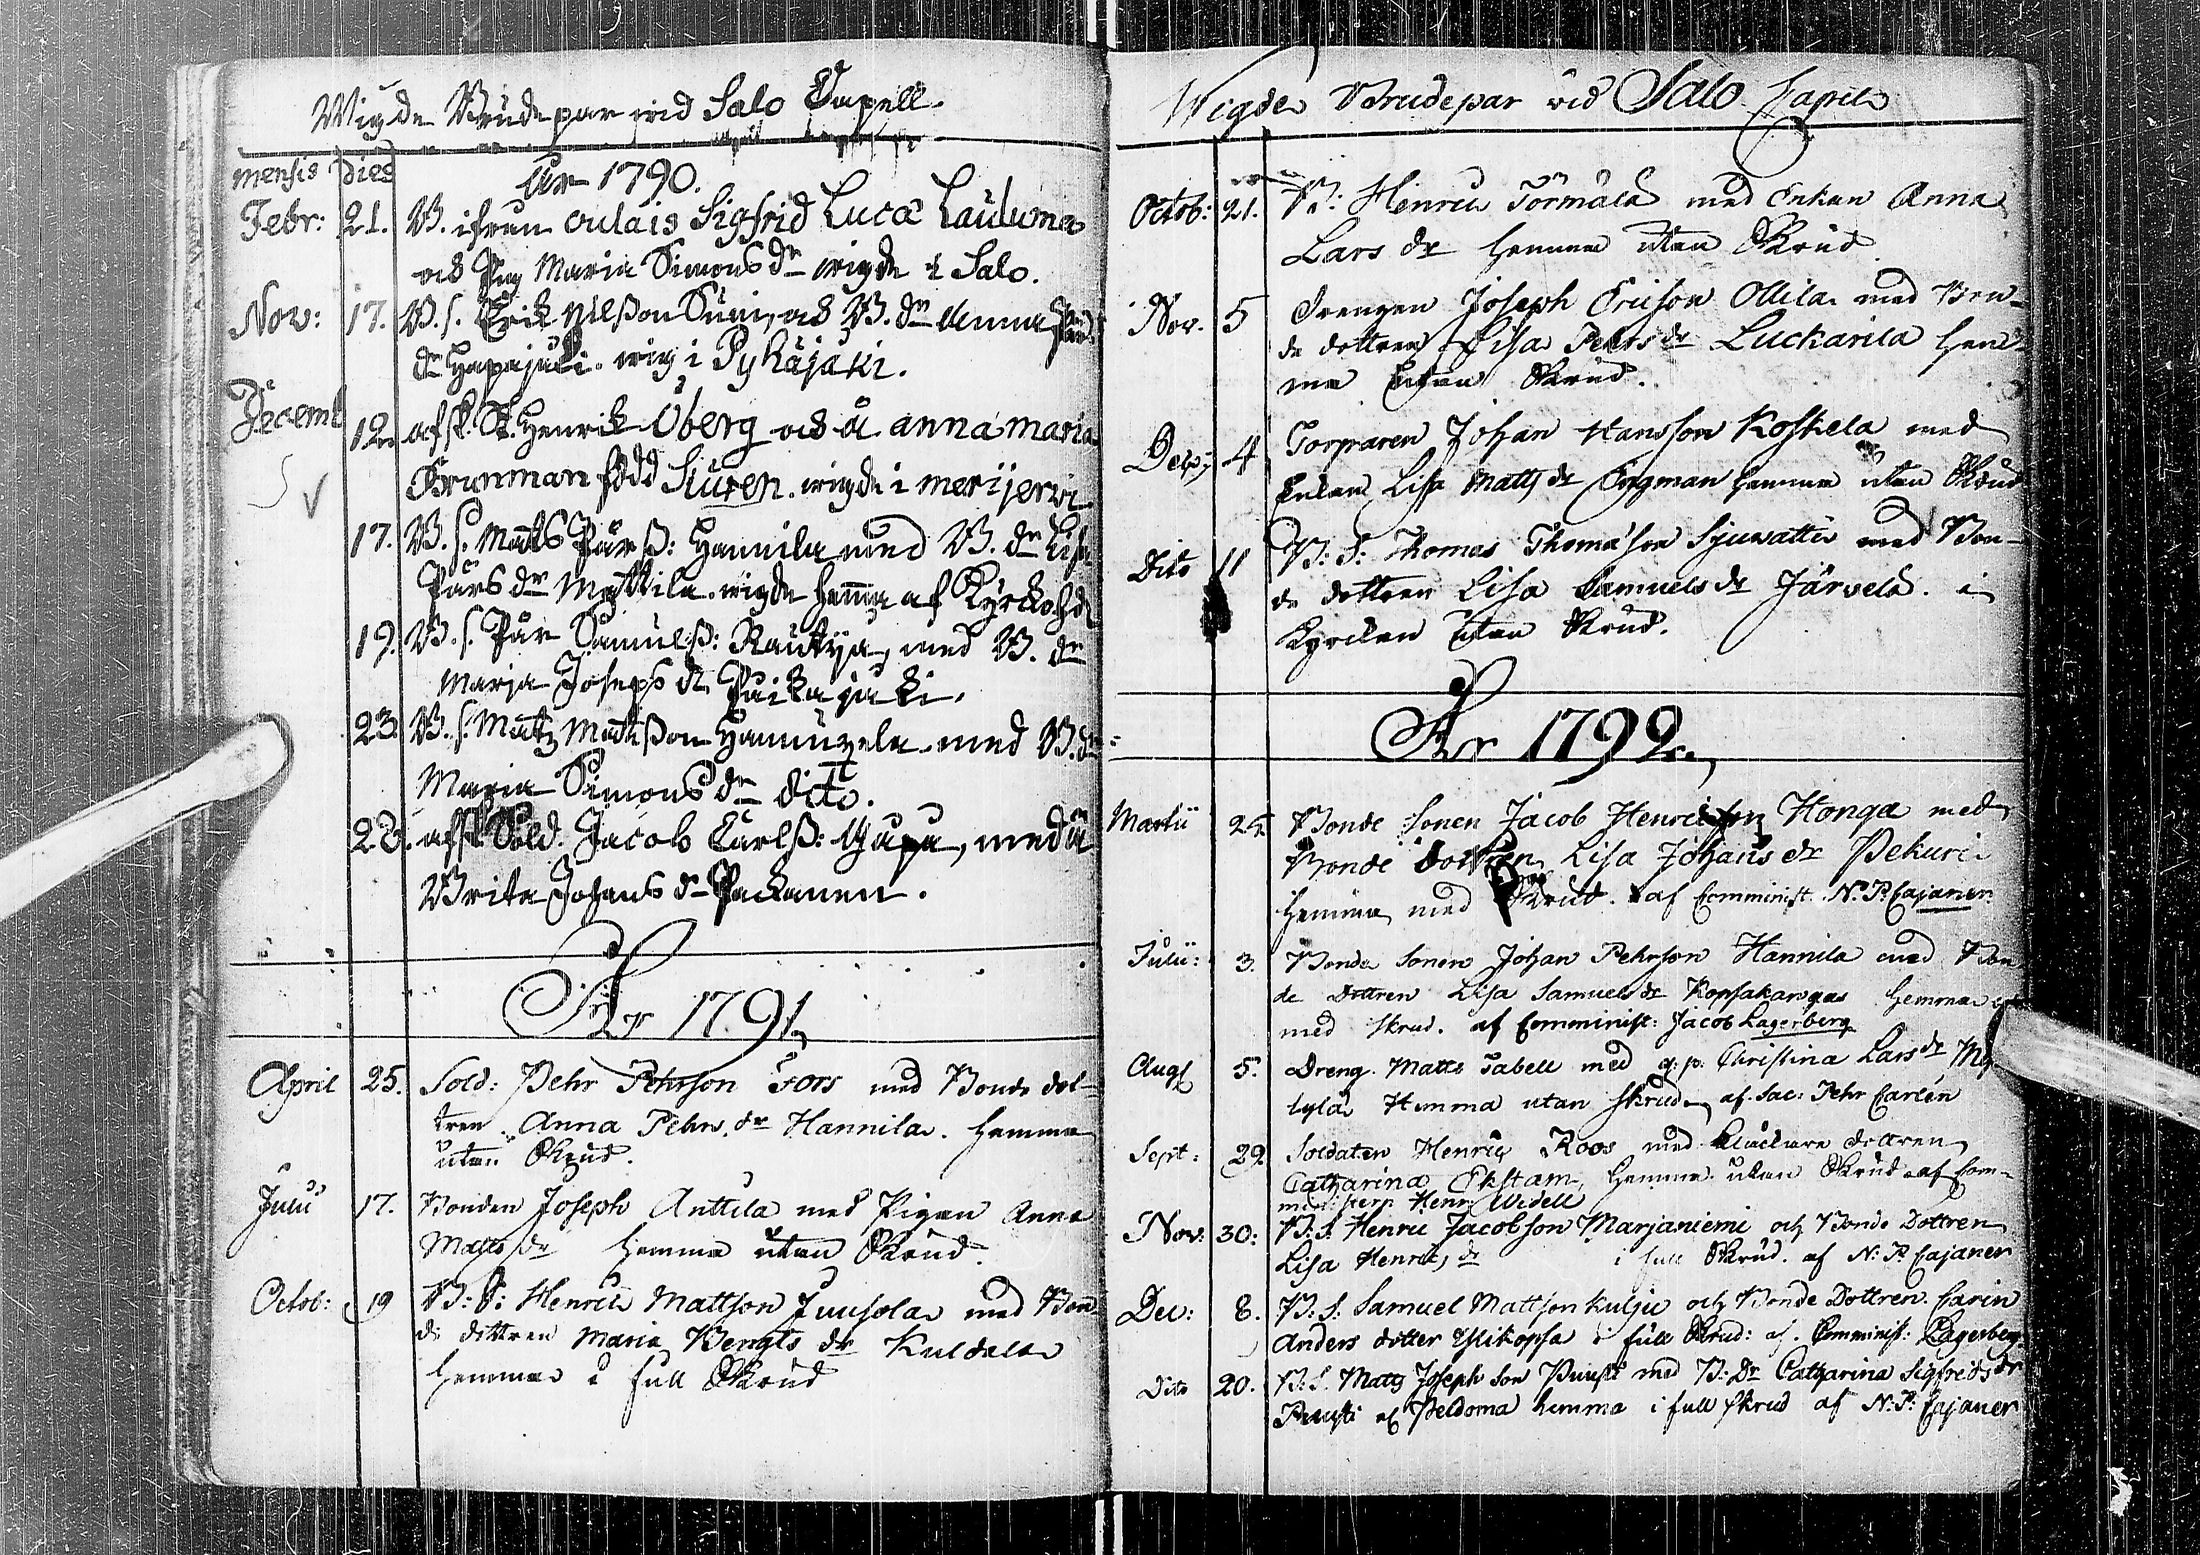 Wigde Brudepar wid Salo Capell.
mensis dies
År 1790.
Febr: 21. B. ifrån Oulais Sigfrid Luca Lauluma
och Pig Maria Simons dr wigde i Salo.
Nov: 17. B. s. Erik Nilsson Suni, och B. dr
dr Hapajoki. wig i Pyhäjoki.
Decemb
12. afsk. St. Henrik Öberg och Ä. anna maria
Brunman född Suren. wigde i merijerwi
17. B. s. Mats Pärss: Hannila med B. dr Lisa
Pärs dr Mattila. wigde hemma af Kyrckohd
19. B. s. Pär Samulss: Rautio, med B. dr
Marja Josephs dr
23. B. s. Matz Matsson med B. dr
Maria Simons dr dito.
28. afsk. Sold. Jacob Carlss: med Ä
Brita Johans dr Packanen.
År 1791.
April 25. Sold: Pehr Pehrson Fors med Bonde dot-
tren Anna Pehrs. dr Hannila. hemma
utan Skrud.
17. Bonden Joseph Anttila med Pigan Anna
Matts dr hemma utan Skrud.
Octob: 19 B: S: Henric Mattson Juusola med Bon
de dottren Maria Bengts dr Kuldala
hemma i full Skrud
Wigde Brudepar wid Salo Capell
Octob: 21. B: Henric Törmälä med Enkan Anna
Lars dr hemma utan Skrud
Nov. 5 Drengen Joseph Ericson Ollila med Bon-
de dottren Lisa Pehrs dr Luckarila hem-
ma utan Skrud.
4 Torparen Johan Hansson Koskela med
Enkan Lisa Matts dr Engman hemma utan Skrud
Dito 11 B: S: Thomas Thomasson med Bon-
de dottren Lisa Samuels dr Järvelä. i
Kyrckan utan Skrud.
År 1792.
Martii 25. Bonde Sonen Jacob Henricson Honga med
Bonde dottren Lisa Johans dr Pekuri
hemma med Skrud. af Comminist. N. P. Cajaner.
Julii: 3. Bonde Sonen Johan Pehrson Hannila med Bon
de Dottren Lisa Samuels dr Kopsakangas hemma
med Skrud. af Comminist: Jacob Lagerberg
Aug 5. Dreng. Matts Tabell med g. p. Christina Lars dr
Hemma utan skrud. af Sac: Pehr Carlén
Sept: 29. Soldaten Henric Roos med Klåckare dottren
Catharina Ekstam, hemma utan Skrud af Com-
ministern Henr: Widell
Nov: 30: B: S. Henric Jacobson Marjaniemi och Bonde Dottren
Lisa Henrics dr i full Skrud. af N: P. Cajaner
Dec: 8. B: S. Samuel Mattson Kulju och Bonde Dottren Carin
Anders dotter Ylikopsa i full Skrud: af. Comminist: Lagerberg
Dito 20. B: S. Matts Joseph Son Puusti med B: Dr Catharina Sigfreds dr
Puusti af hemma i full skrud af N: P: Cajaner